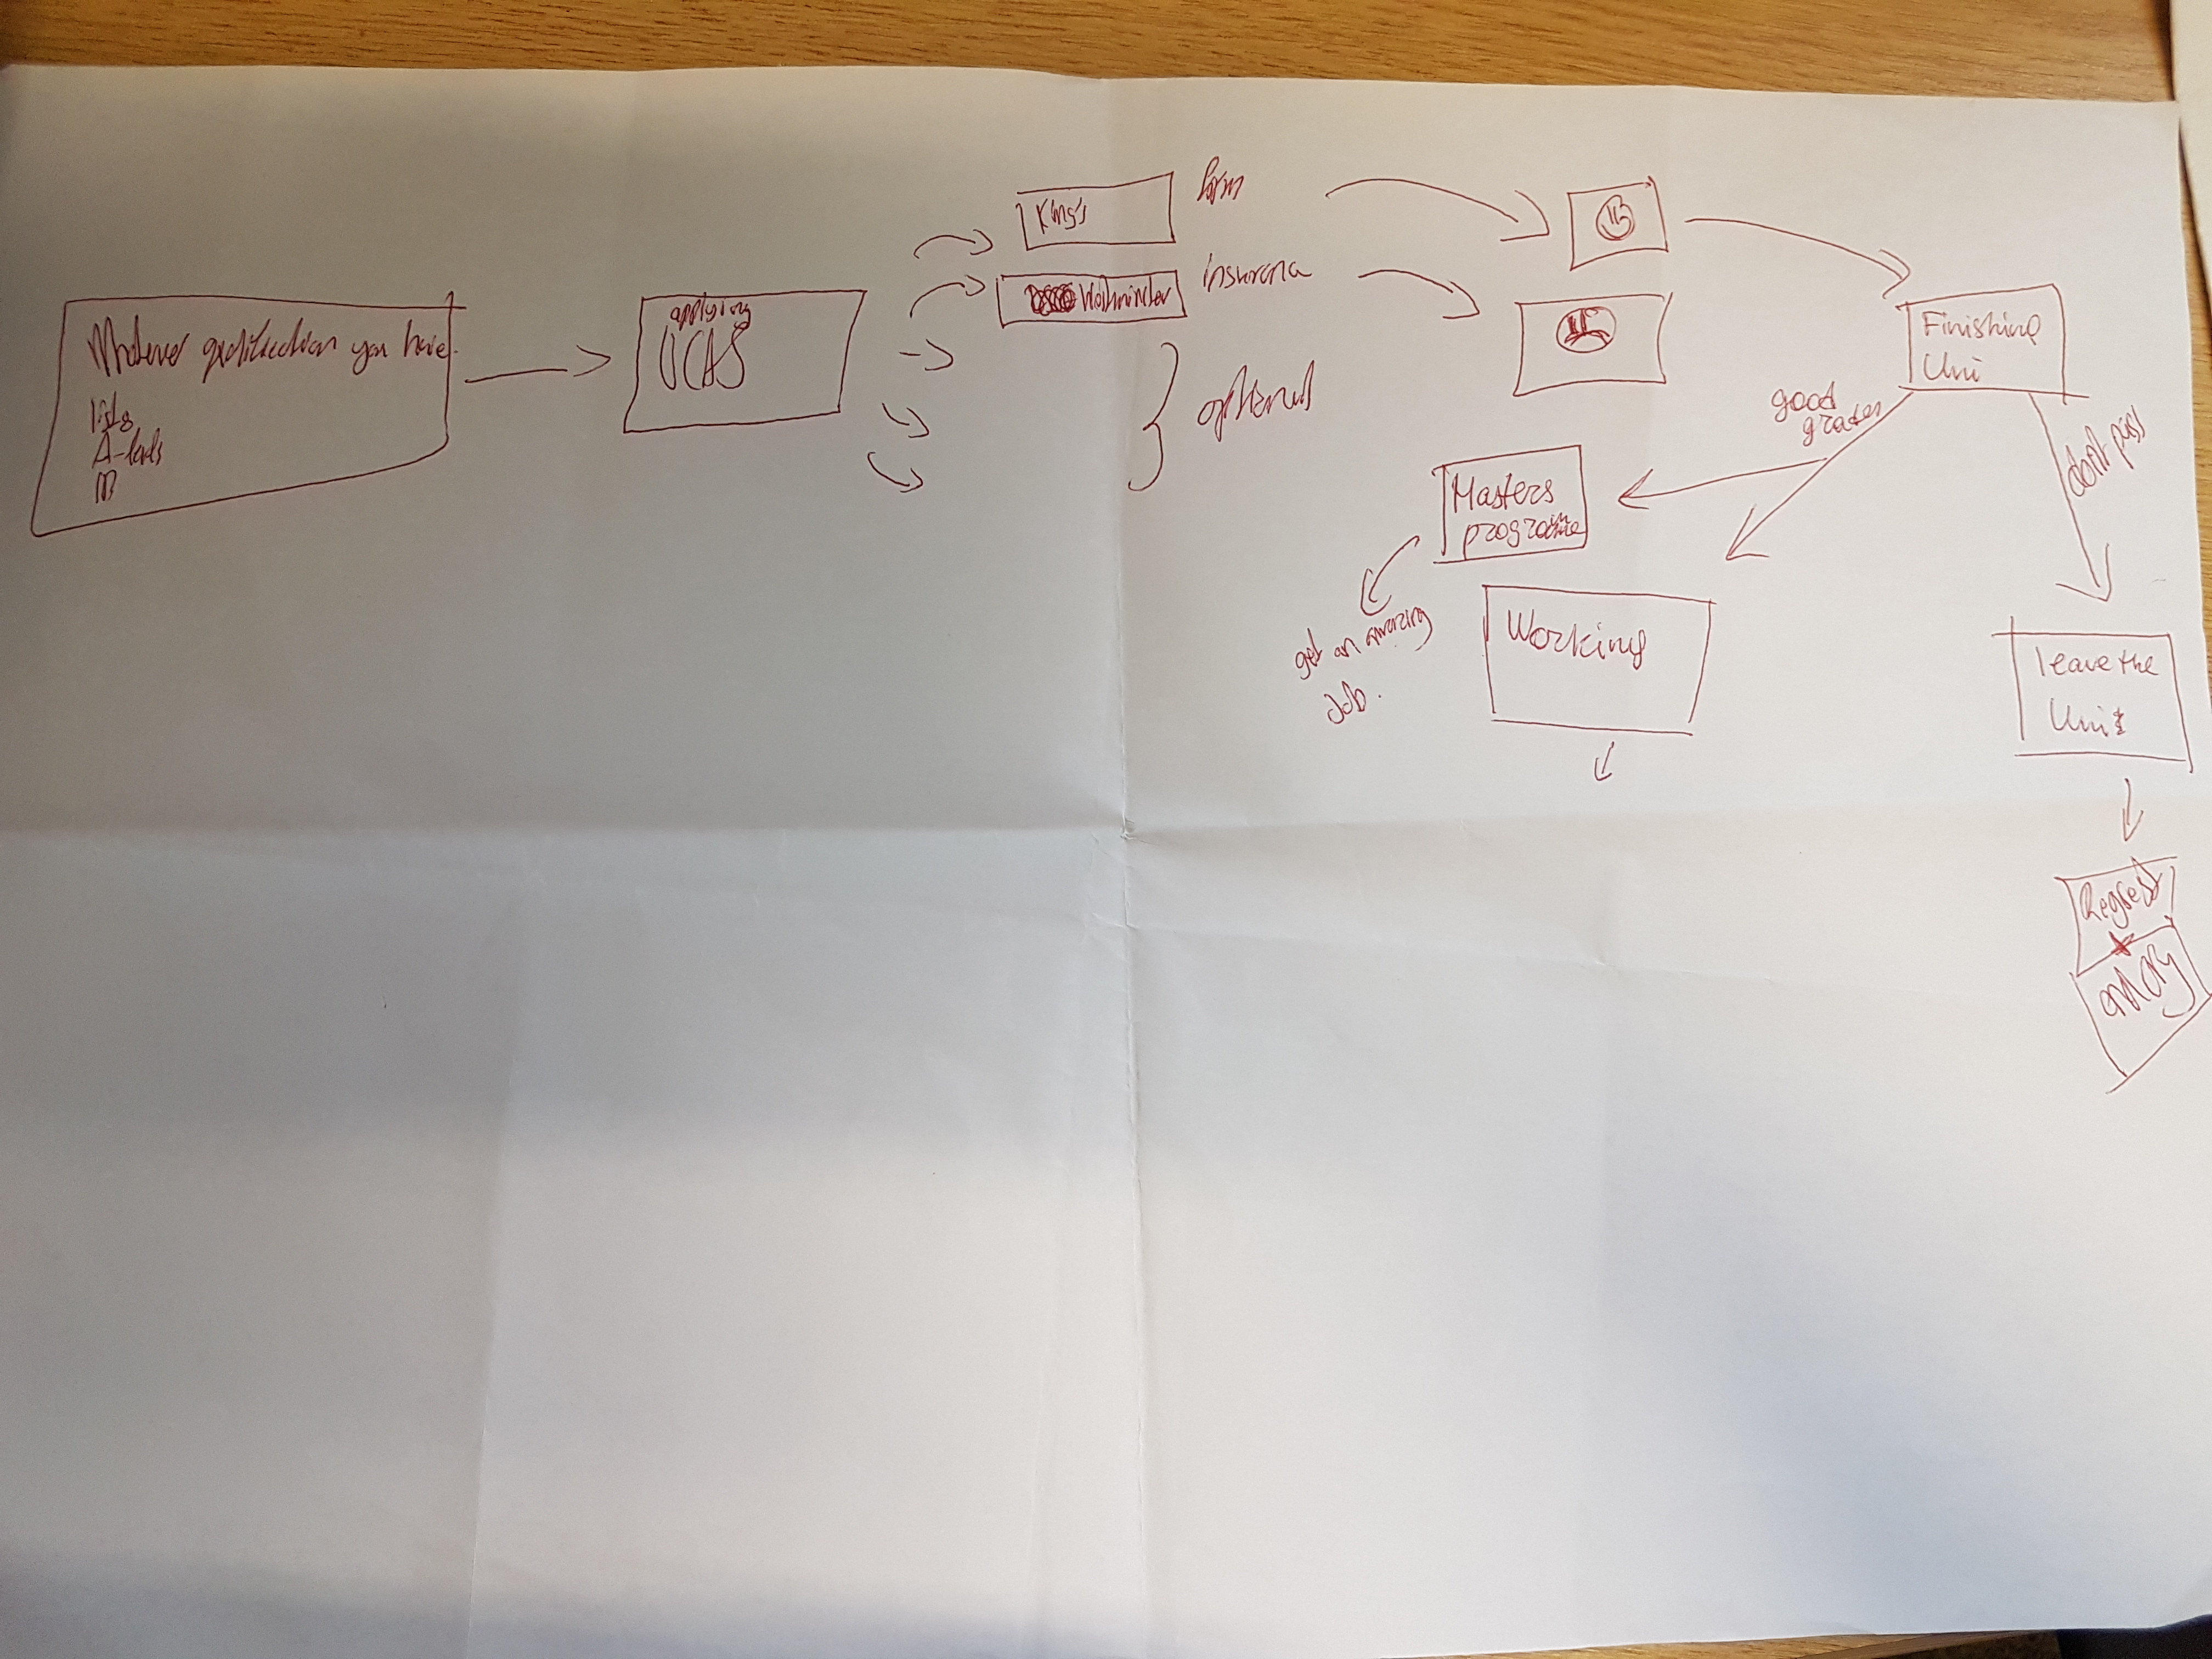 Whatever qualification you have.
lists
A-levels
applying
UCAS
King's
firm
Westminster
insurance
optional
Finishing
Uni
good
grades
don't pass
Masters
programme
get an amazing
Job.
Working
leave the
Uni
Regret
and cry